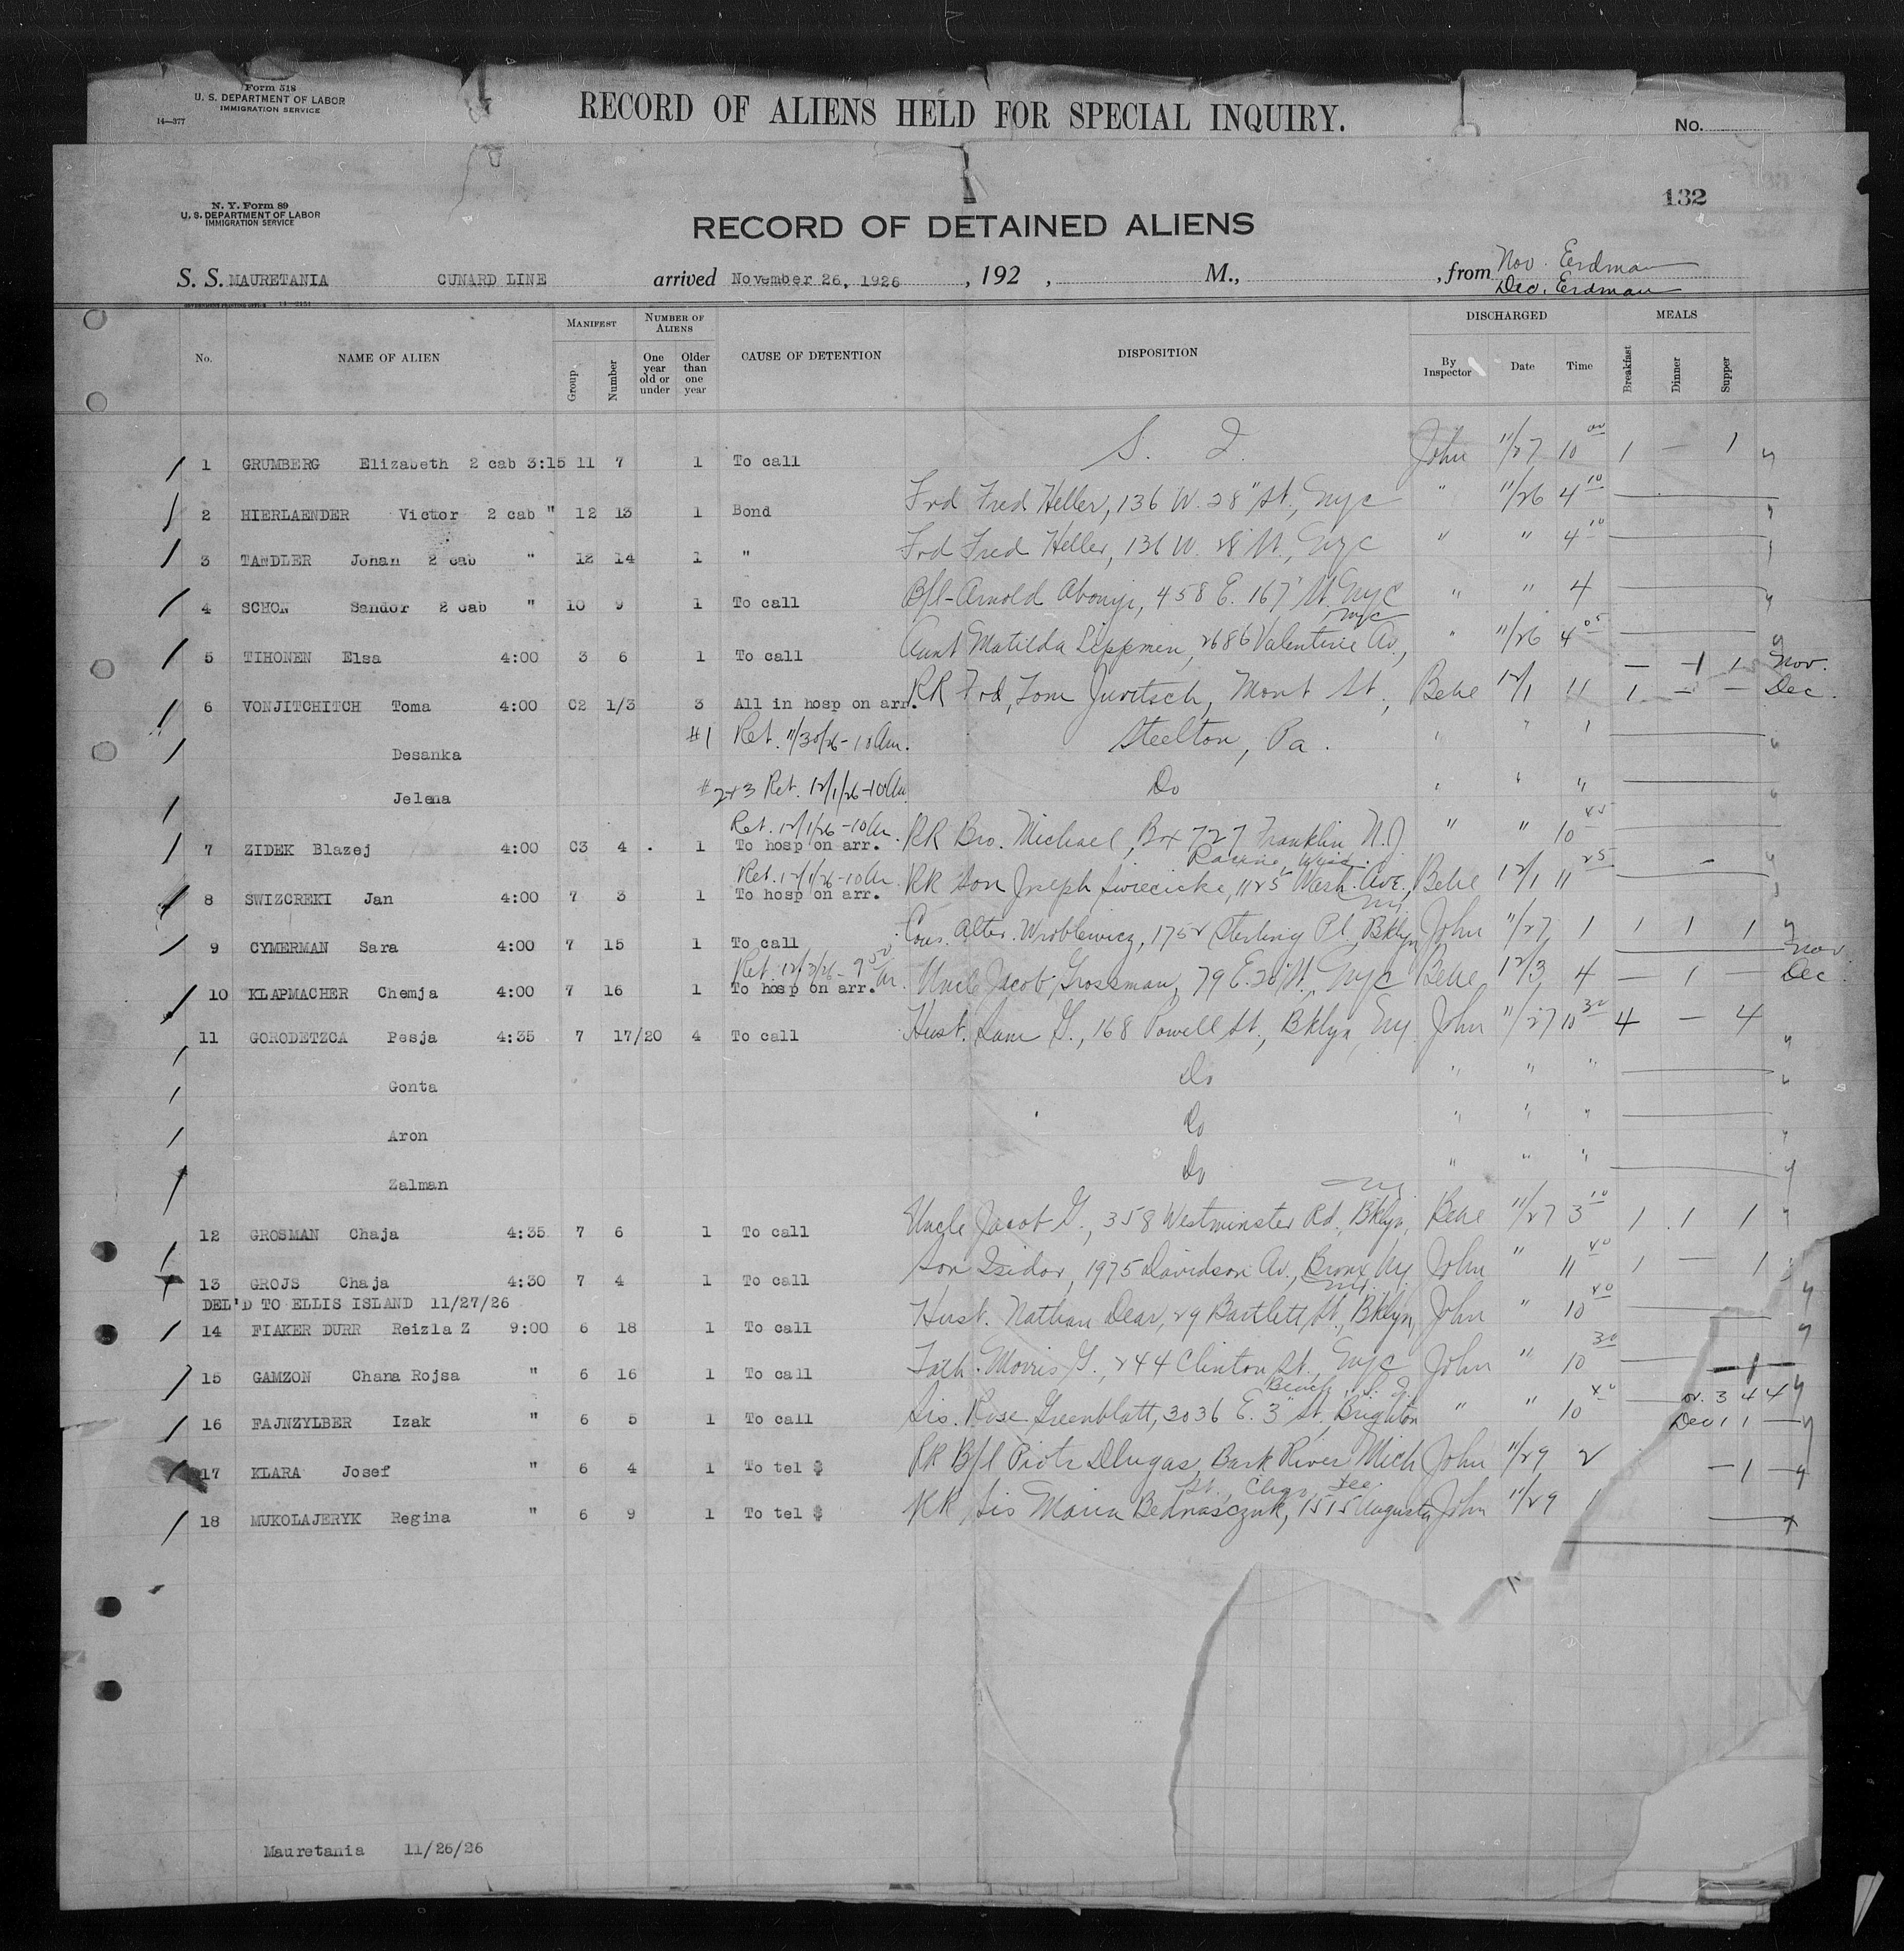 Form 518
U. S. DEPARTMENT OF LABOR
IMMIGRATION SERVICE
14—377
RECORD OF ALIENS HELD FOR SPECIAL INQUIRY.
No.
132
N. Y. Form 89
U. S. DEPARTMENT OF LABOR
IMMIGRATION SERVICE
RECORD OF DETAINED ALIENS
S. S. MAURETANIA CUNARD LINE arrived November 26, 1926, 192 , M., , from Nov. Erdman
Dec. Erdman
No. NAME OF ALIEN MANIFEST Group Number NUMBER OF ALIENS One year old or under Older than one year CAUSE OF DETENTION DISPOSITION DISCHARGED By Inspector Date Time MEALS Breakfast Dinner Supper
1 GRUMBERG Elizabeth 2 cab 3:15 11 7 1 To call S. I. John 11/27 10 00 1 — 1
2 HIERLAENDER Victor 2 cab " 12 13 1 Bond Frd Fred Heller, 136 W. 28" St., Nyc " 11/26 4 10
3 TANDLER Johan 2 cab " 12 14 1 " Frd Fred Heller, 136 W. 28" St., Nyc " " 4 10
4 SCHON Sandor 2 cab " 10 9 1 To call B/l - Arnold Abonyi, 458 E. 167" St. Nyc " " 4
5 TIHONEN Elsa 4:00 3 6 1 To call Aunt Matilda Lippmen, 2686 Valentine Av., Nyc " 11/26 4 05
— 1 1 Nov.
6 VONJITCHITCH Toma 4:00 C2 1/3 3 All in hosp on arr. RR Frd, Tom Juvitsch, Mont St., Behe 12/1 11 1 — — Dec.
#1 Ret. 11/30/26 - 10 Am. Steelton, Pa. " " "
Desanka
Jelena #2+3 Ret. 12/1/26 - 10 Am. Do " " "
Ret. 12/1/26 - 10 Am.
7 ZIDEK Blazej 4:00 C3 4 1 To hosp on arr. RR Bro. Michael, Box 727 Franklin N.J. " " 10 45
Ret. 12/1/26 - 10 Am. Racine, Wisc.
8 SWIZCREKI Jan 4:00 7 3 1 To hosp on arr. RR Son Joseph Swiecicke, 1125 Wash. Ave., Behe 12/1 11 25
9 CYMERMAN Sara 4:00 7 15 1 To call Cous. Alter Wroblewicz, 1752 Sterling Pl, Bklyn NY John 11/27 1 1 1 1
Nov
Ret. 12/3/26 - 9 50 Am.
10 KLAPMACHER Chemja 4:00 7 16 1 To hosp on arr. Uncle Jacob Grossman, 79 E. 20" St., Nyc Behe 12/3 4 — 1 — Dec
11 GORODETZCA Pesja 4:35 7 17/20 4 To call Husb. Sam G., 168 Powell St., Bklyn, Ny John 11/27 10 30 4 — 4
Gonta Do " " "
Aron Do " " "
Zalman Do " " "
12 GROSMAN Chaja 4:35 7 6 1 To call Uncle Jacob G., 358 Westminster Rd, Bklyn, Ny. Behe 11/27 3 10 1 1 1
13 GROJS Chaja 4:30 7 4 1 To call Son Isidor, 1975 Davidson Av., Bronx, Ny John " 11 40 1 — 1
DEL'D TO ELLIS ISLAND 11/27/26
14 FIAKER DURR Reizla Z 9:00 6 18 1 To call Husb. Nathan Dear, 29 Bartlett St., Bklyn, Ny. John " 10 40
15 GAMZON Chana Rojsa " 6 16 1 To call Fath. Morris G., 244 Clinton St., Nyc John " 10 30
— 1 —
16 FAJNZYLBER Izak " 6 5 1 To call Sis. Rose Greenblatt, 3036 E. 3" St, Brighton Beach, L. I. " " 10 40
ov. 3 4 4
Dec 1 1 —
17 KLARA Josef " 6 4 1 To tel $ RR B/l Piotr Dlugas, Bark River Mich John 11/29 2 — 1 —
18 MUKOLAJERYK Regina " 6 9 1 To tel $ RR Sis Maria Bednasczuk, 1515 Augusta St., Chgo, Ill. John 11/29 1
Mauretania 11/26/26